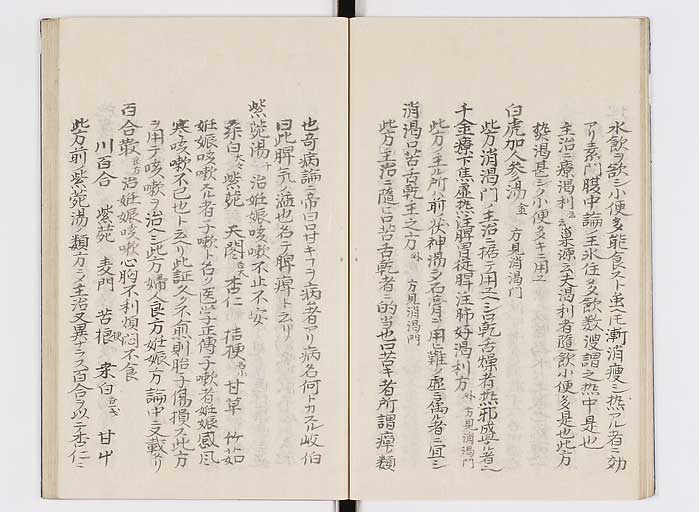 水飲ヲ欲シ小便多能食スト虽𪜈漸消瘦シ熱アル者ニ効
アリ素門腹中論ノ王氷住多飲数溲謂之热中是也
主治ニ療渇利ト云巣源云夫渇利者隨飲小便多是也此方
煩渇甚シク小便多キニ用ユ
白虎加人参湯 金 方見消渇門
此方消渇門ノ主治ニ據テ用ヘシ口乾舌燥者热邪盛ノ者ヘ
千金療下焦虚热注脾胃從脾注肺好渇利方 外 方見消渇門
此方ノ主ル所ハ前ノ茯神湯ノ石膏ヲ用ヒ難ク虚ニ属ル者ニ宜シ
消渇口苦舌乾王之方 外 方見消渇門
此方主治ニ随ヒ口苦舌乾者ニ的当也口苦キ者所謂癉ノ類
也奇病論ニ帝曰口甘キヲ病ム者アリ病名何トカスル岐伯
曰此脾氣ノ溢也名テ脾癉ト云リ
紫菀湯 治妊娠咳嗽不止不安
桑白 大 紫菀 天門 各大 杏仁 桔梗 各小 甘草 竹茹
妊娠咳嗽スル者子嗽ト名ク医学正傳子嗽者妊娠感风
寒咳嗽不已也ト云ヘリ此証久ク不愈則胎子傷損ス此方
ヲ用テ咳嗽ヲ治ヘシ此方婦人良方妊娠方論中ニ又載タリ
百合散 良方 治妊娠咳嗽心胸不利煩悶不食
川百合 紫菀 麦門 苦梗 桑白 甘艸
此方前ノ紫菀湯ノ類方ニシテ主治又異ナラス百合ヲ以テ杏仁ニ